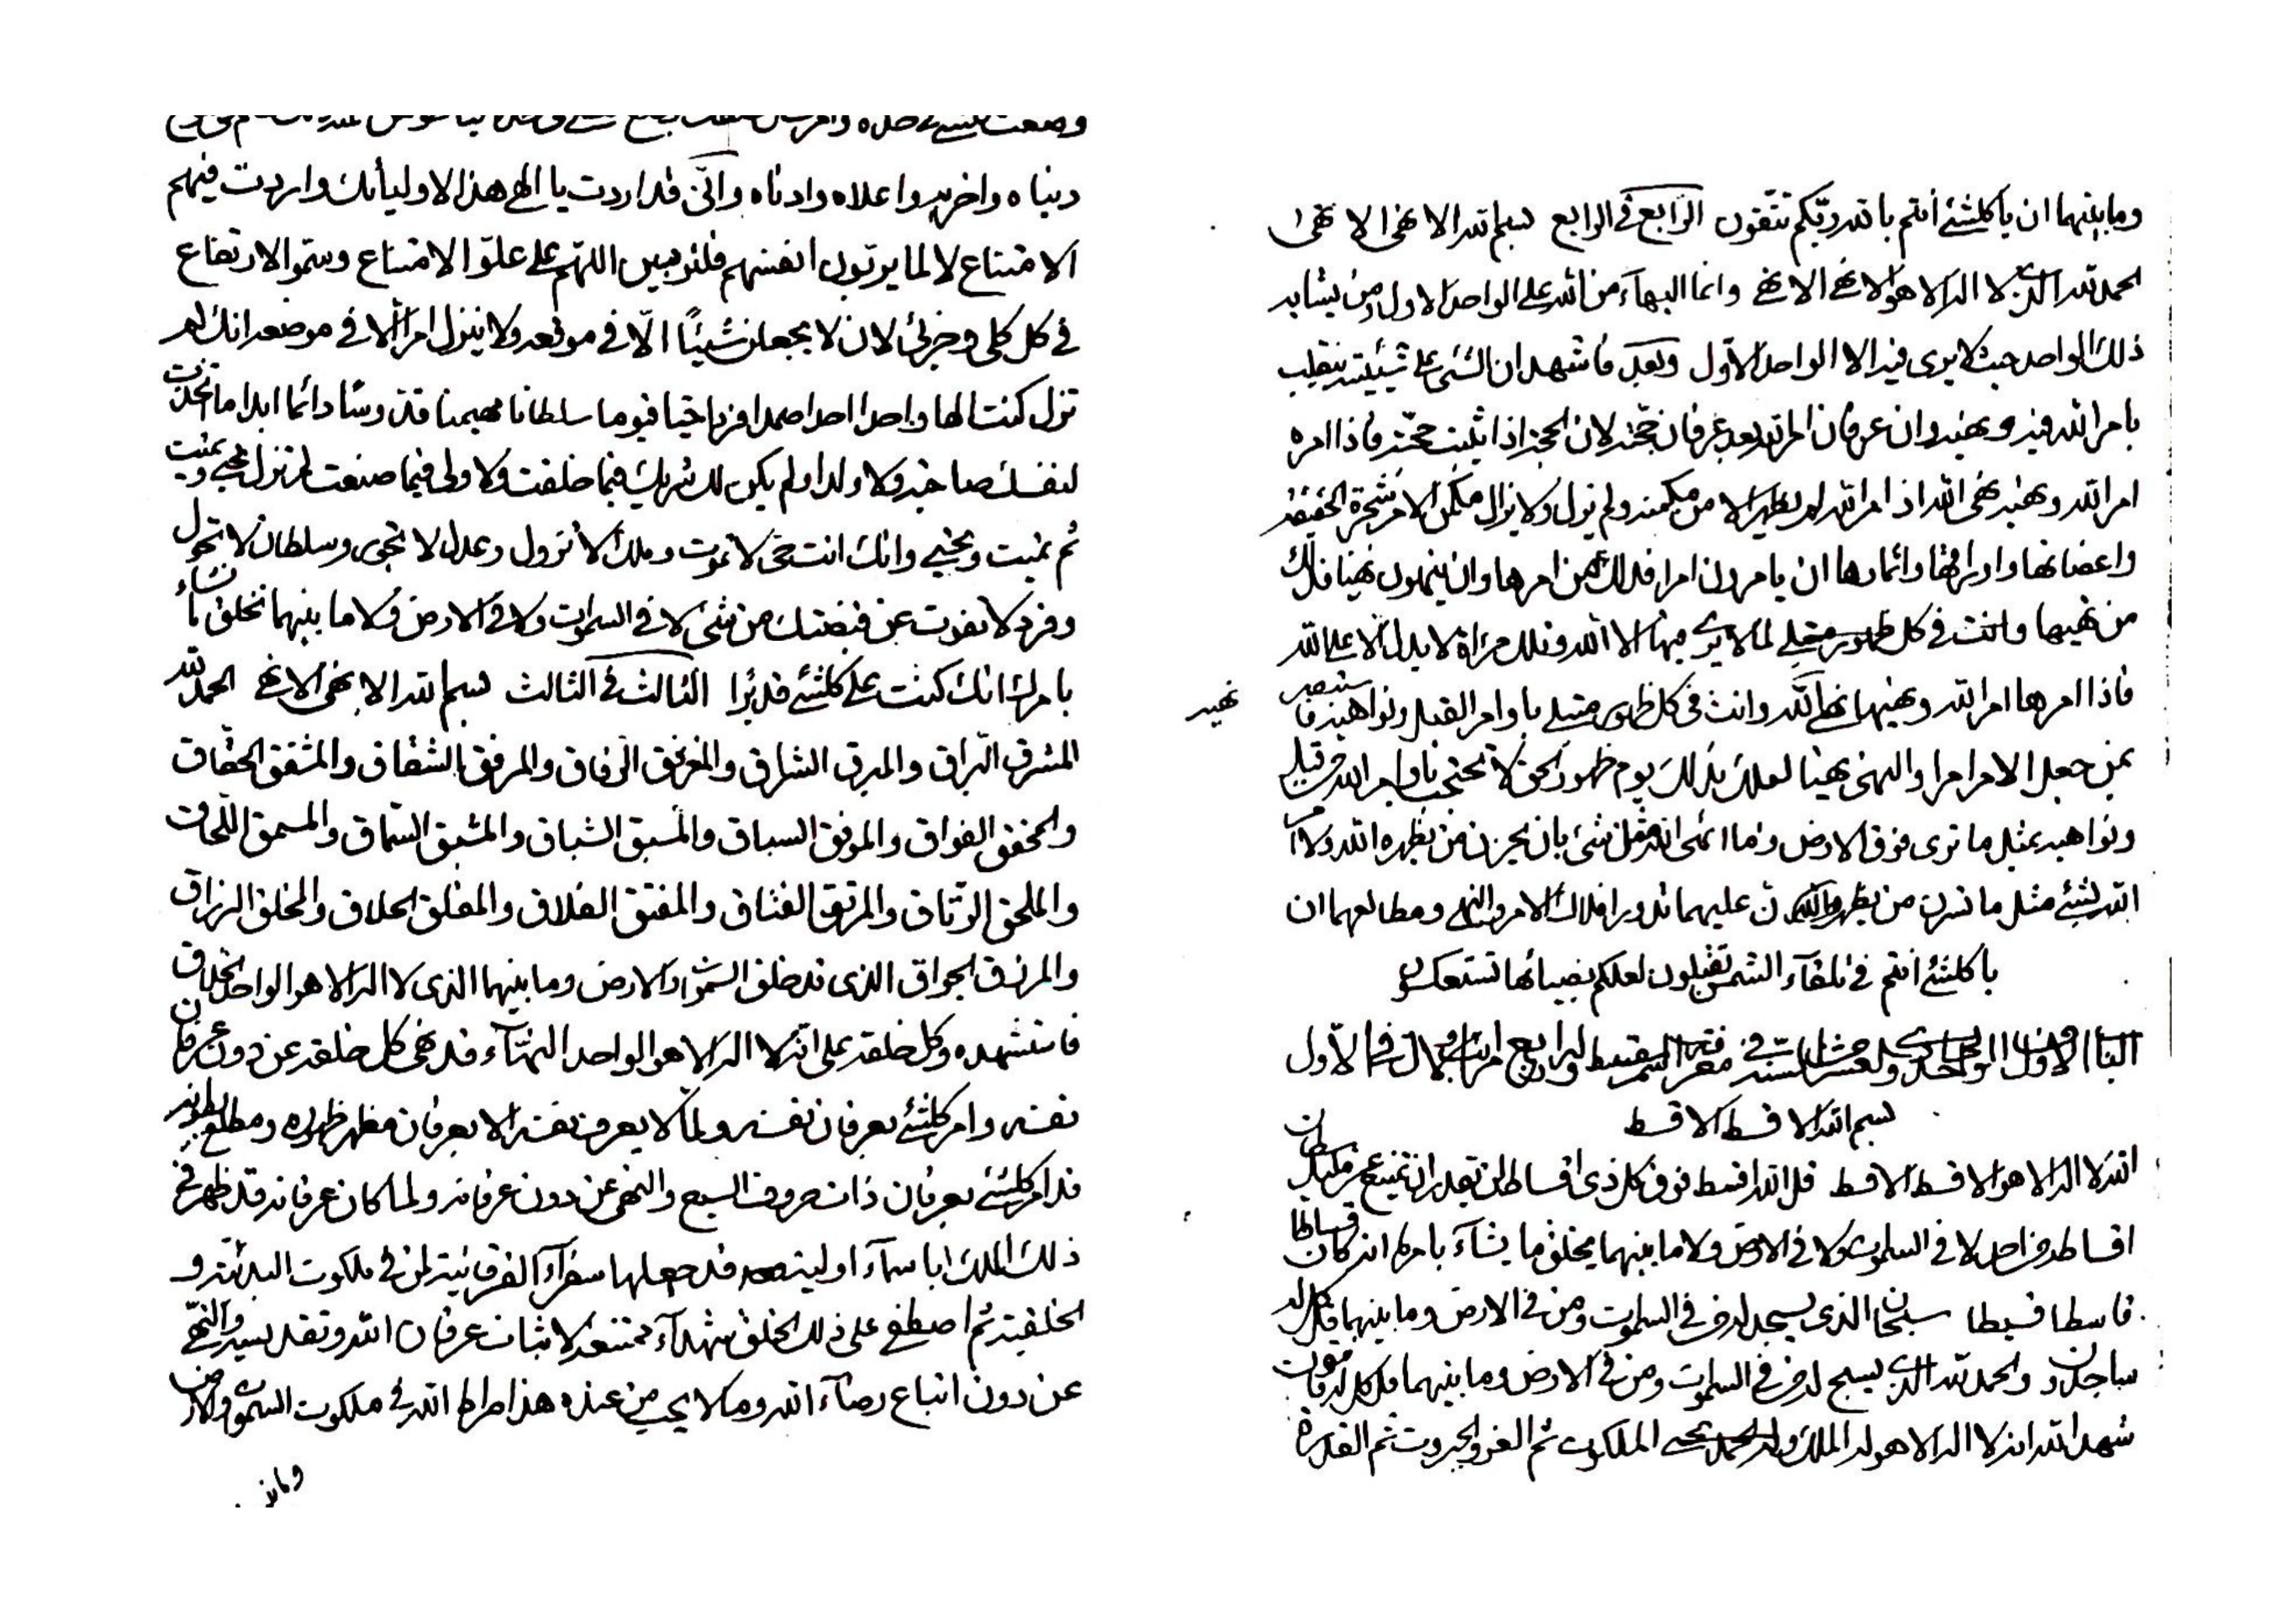 دیناه واخریه واعلاه وادناه وانّی قد اردت یا الهی هذا لاولیائک واردت فیهم
الامتناع لا لما یرتّون انفسهم فلتربین اللهم علی علوّ الامتناع وسموّ الارتفاع
فی کل کلی وجزئی لان لا یجعلن شیئًا الّا فی موقعه ولا ینزل امرا الّا فی موضعه انک لم
تزل کنت الها واحدا احدا صمدا فردا حیا قیوما سلطانا مهیمنا قدوسا دائما ابدا ما اتخذت
لنفسک صاحبة ولا ولدا ولم یکن لک شریک فیما خلقت ولا ولی فیما صنعت لم تزل تحیی وتمیت
ثم تمیت وتحیی وانک انت حی لا تموت وملک لا تزول وعدل لا تجور وسلطان لا تحول
وفرد لا یفوت عن قبضتک من شئ لا فی السموات ولا فی الارض ولا ما بینهما تخلق ما تشاء
بامرک انک کنت علی کلشئ قدیرا الثالث فی الثالث بسم الله الابهی الابهی الحمد لله
المشرق البراق والمبرق الشراق والمفرق الرفاق والمرفق الشفاق والمشفق الحقاق
والمحقق الفواق والموفق السباق والمسبق الشباق والمشبق السماق والمسمق اللحاق
والملحق الرتاق والمرتق الفتاق والمفتق الفلاق والمفلق الحلاق والمخلق الرزاق
والمرزق الجواق الذی قد خلق السموات والارض وما بینهما الذی لا اله الا هو الواحد الخلاق
فاستشهده وکل خلقه علی انه لا اله الا هو الواحد البهّآء قد نهی کل خلقه عن دون عرفان
نفسه وامر کلشئ بعرفان نفسه ولمّا لا یعرف نفسه الا بعرفان مظهر ظهوره ومطلع بطونه
قد امر کلشئ بعرفان ذات حروف السبع والنهی عن دون عرفانه ولما کان عرفانه قد ظهر فی
ذلک الملک باسمآء اولیه قد جعلها سفرآء الفرقانیة لمن فی ملکوت البدئیة و
الخلقیة ثم اصطفی علی ذلک الخلق شهدآء ممتنعة لاثبات عرفان الله وتقدیسه والنهی
عن دون اتباع رضآء الله وما لا یحب من عنده هذا صراط الله فی ملکوت السموات والارض
وما بینـ
وما بینهما ان یا کلشئ انتم بالله ربکم تتقون الرابع فی الرابع بسم الله الابهی الابهی
الحمد لله الذی لا اله الا هو الابهی الابهی وانما البهآء من الله علی الواحد الاول ومن یشابه
ذلک الواحد حیث لا یری فیه الا الواحد الاوّل وبعد فاشهد ان الشئ علی شیئیته ینقلب
بامر الله فیه ونهیه وان عرفان امر الله بعد عرفان حجته لان الحجة اذا ثبت حجته فاذا امره
امر الله ونهیه نهی الله اذ امر الله لم یظهر الا من مکمنه ولم یزل ولا یزال مکمن الامر شجرة الحقیقة
واغصانها واوراقها واثمارها ان یامرون امرا فذلک من امرها وان ینهون نهیا فذلک
من نهیها وانت فی کل ظهور متجلی لما لا یری فیها الا الله وتلک مرآة لا یدل الا علی الله
فاذا امرها امر الله ونهیها نهی الله وانت فی کل ظهور مبتلی باوامر القبل ونواهیه فاستبصر
نهیه
بمن جعل الامر امرا والنهی نهیا لعلک بذلک یوم ظهور الحق لا تحتجب باوامر الله من قبل
ونواهیه بمثل ما تری فوق الارض وما نهی الله مثل شئ بان یحزن من یظهره الله ولا امر
الله بشئ مثل ما تسرن من یظهره الله ان علیهما تدور افلاک الامر والنهی ومطالعهما ان
یا کلشئ انتم فی تلقآء الشمس تقبلون لعلکم بضیائها تستعکسون
بسم الله الاقسط الاقسط
الله لا اله الا هو الاقسط الاقسط قل الله اقسط فوق کل ذی اقساط لن یقدر ان یمتنع عن ملیک سلطان
اقساطه من احد لا فی السموات ولا فی الارض ولا ما بینهما یخلق ما یشآء بامره انه کان قساطا
قاسطا قسیطا سبحان الذی یسجد له من فی السموات ومن فی الارض وما بینهما قل کل له
ساجدون والحمد لله الذی یسبح له من فی السموات ومن فی الارض وما بینهما قل کل له قانتون
شهد الله انه لا اله الا هو له الملک والملکوت ثم العز والجبروت ثم القدرة